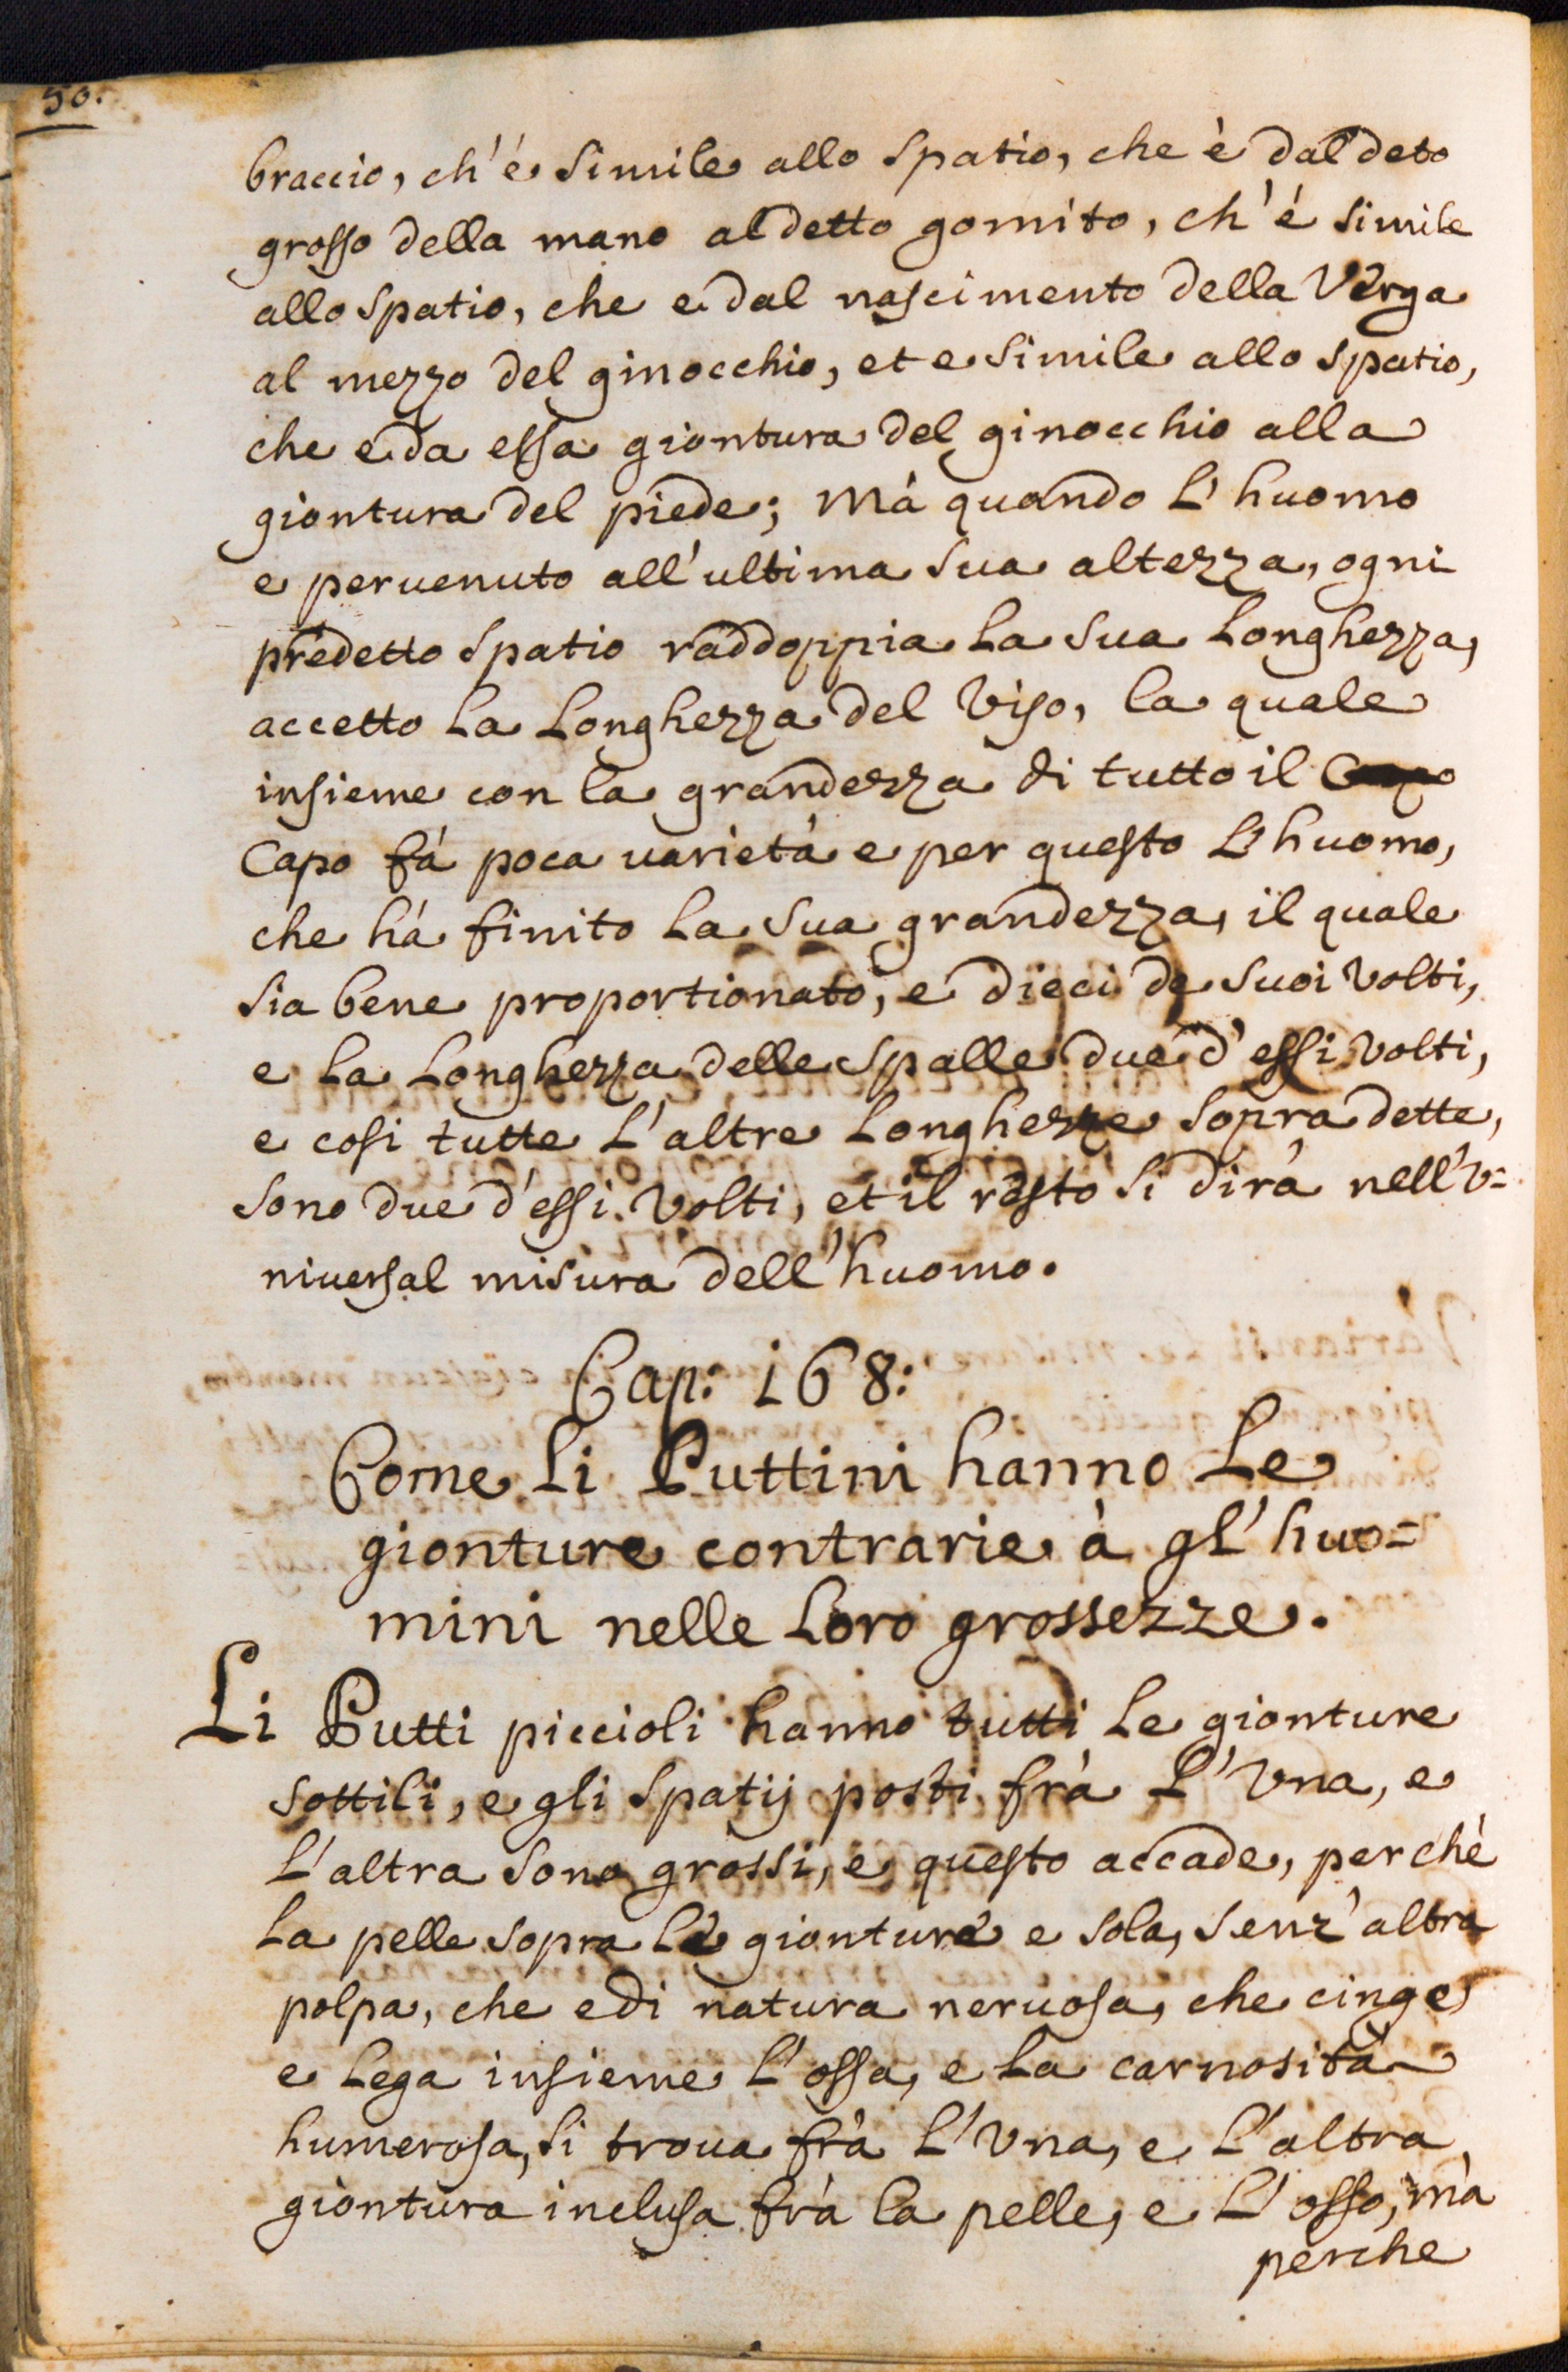 50.
braccio, ch'é simile allo spatio, che è dal deto
grosso della mano al detto gomito, ch'é simile
allo spatio, che e dal nascimento della Verga
al mezzo del ginocchio, et e simile allo spatio,
che e da essa giontura del ginocchio alla
giontura del piede; Mà quando L'huomo
e peruenuto all'ultima sua altezza, ogni
predetto spatio raddoppia La sua Longhezza,
accetto La Longhezza del Viso, la quale
insieme con la grandezza di tutto il
Capo fá poca uarietà e per questo L'huomo,
che há finito La sua grandezza, il quale
sia bene proportionato, é dieci de suoi Volti,
e La Longhezza delle spalle due d'essi Volti,
e cosi tutte L'altre Longhezze sopra dette,
sono due d'essi Volti, et il resto si dirà nell'v=
niuersal misura dell'huomo.
Cap: 168:
Come Li Puttini hanno Le
gionture contrarie à gl'huo=
mini nelle Loro grossezze.
Li Putti piccioli hanno tutti Le gionture
sottili, e gli spatij posti frà L'Vna, e
L'altra sono grossi, e questo accade, perchè
La pelle sopra Le gionture e sola, senz'altra
polpa, che e di natura neruosa, che cinge,
e Lega insieme L'ossa, e La carnosità
humerosa, si troua frà L'Vna, e L'altra
giontura inclusa frà la pelle, e L'osso, mà
perche